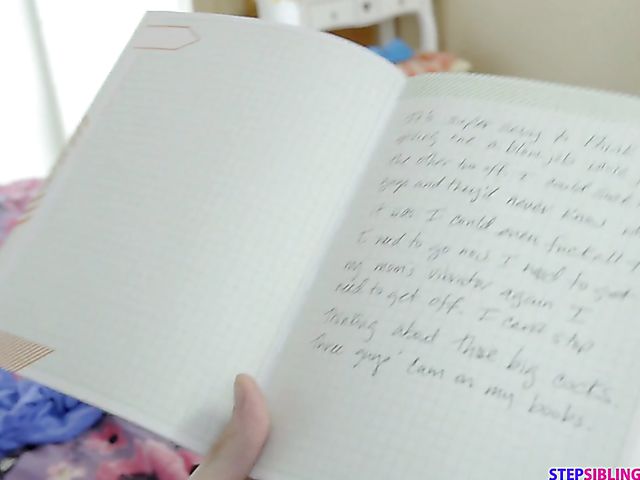 It's super sexy to think
giving one a blow job while
the other two off. I could
guys and they'd never know
it was I could even fuck all
I need to go now I need to get
my moms vibrator again I
need to get off. I cant stop
thinking about those big cocks.
three guys' cum on my boobs.
STEPSIBLING